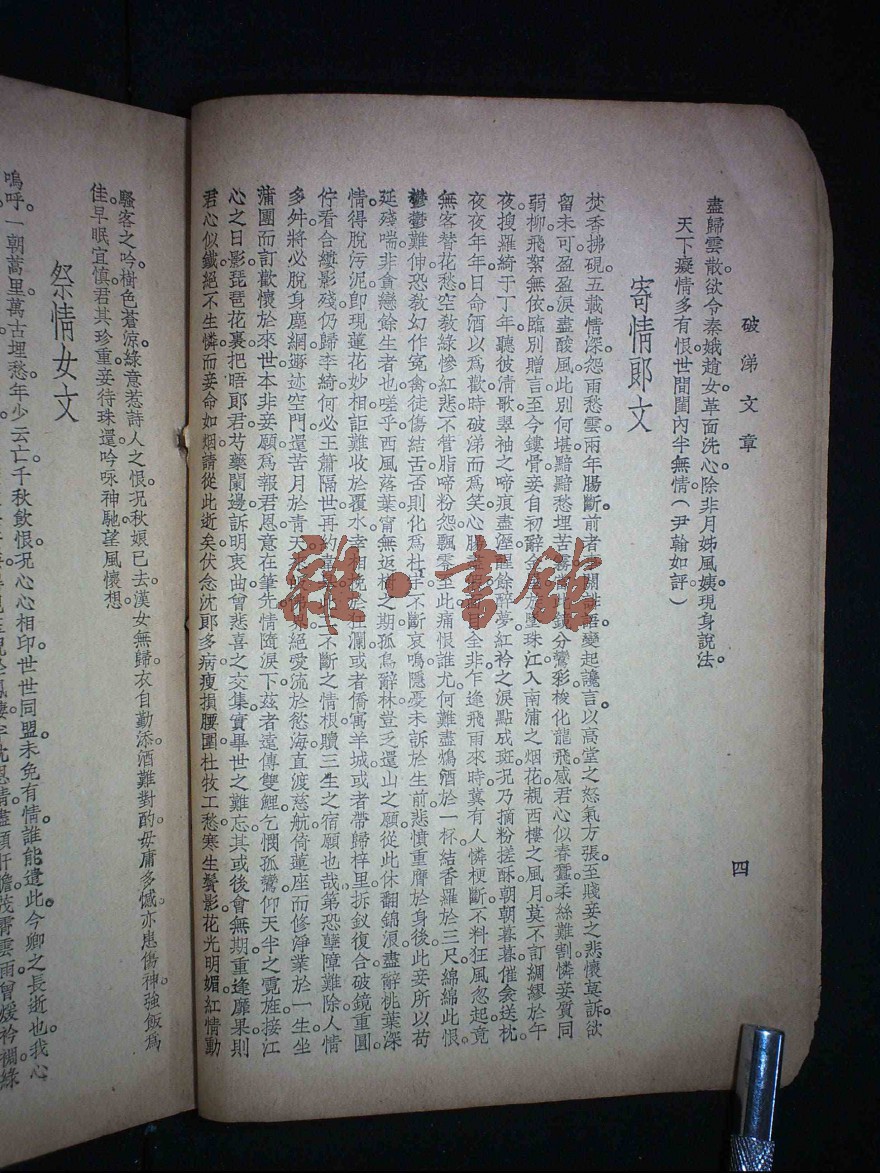 破涕文章
四
盡歸雲散。欲令秦娥趙女。革面洗心。除非月姊風姨。現身說法。
天下癡情多有恨。世間閨內半無情。（尹翰如評）
寄情郎文
焚香拂硯。五載情深。怨雨愁雲。兩年腸斷。前者 變起讒言。以高堂之怒氣方張。至賤妾之悲懷莫訴。欲
留未可。盈盈淚盡酸風。此別何堪。黯黯愁埋苦霧 分鸞彩。梭化龍飛。感君心似春蠶。柔絲難割。憐妾質同
弱柳。飛絮無依。臨別贈言。至今鏤骨。妾自初辭金 珠江。入南浦之烟花。視西樓之風月。莫不面綢繆於午
夜。搜羅綺于丁年。聽彼清歌。翠袖之啼痕盡溼。醒餘醉夢。紅衿之淚點成斑。況乃摘粉搓酥。朝朝暮暮。催衾送枕。
夜夜年年。日命酒以爲歡。時破涕而爲笑。心 目全非。乍逢飛雨來時。冀有人憐梗斷。不料狂風忽起。竟
無客替花愁。空敎綠慘紅悲。不管脂啼粉怨。飄零至此。痛恨誰尤。何難盡鴆酒於一杯。結香羅於三尺。綿綿此恨。
鬱鬱難伸。恐敎幻作寃禽。徒傷結舌。否則化爲杜宇。不斷哀鳴。隱憂未訴於生前。悲憤重膺於身後。此妾所以苟
延殘喘。非貪戀餘生者也。嗟乎。西風落葉。甯無返樹之期。孤鳥辭林。豈乏還山之願。從此休翻錦浪。盡辭桃葉深
情。得脫污泥。卽現蓮花妙相。詎難收於覆水。幸相挽於狂瀾。或者僑寓羊城。或者帶歸梓里。拆釵復合。破鏡重圓。
佇看合縷影殘。仍歸李綺。何必玉簫隔世。再約 不斷之情根。贖三生之宿願也哉。第恐孽障難除。人情
多舛。將必脫身塵網。遯迹空門。還苦月於青天 絕愛流於慾海。直渡慈航。倚蓮座而修淨業於一生。坐
蒲團而訂歡懷於來世。本非妾願。爲報君恩。意在筆先。情隨淚下。茲者遠傳雙鯉。乞憫孤鸞。仰天半之霓旌。接江
心之日影。琵琶花裏。把晤郞君。芍藥闌邊。訴明衷曲。曾悲喜之交集。實畢世之難忘。其或後會無期。重逢靡果。則
君心似鐵。絕不生憐。而妾命如烟。請從此逝矣。伏念沈郞多病。瘦損腰圍。杜牧工愁。寒生鬢影。花光明媚。紅情動
騷客之吟。樹色蒼涼。綠意惹詩人之恨。況秋娘已去。漢女無歸。衣自勤添。酒難對酌。毋庸多憾。亦患傷神。強飯爲
佳。早眠宜慎。君其珍重。妾待珠還。吟咏神馳。望風懷想。
祭情女文
嗚呼。一朝萬里。萬古埋愁。年少云亡。千秋飲恨。況心心相印。世世同盟。未免有情。誰能遣此。今卿之長逝也。我心